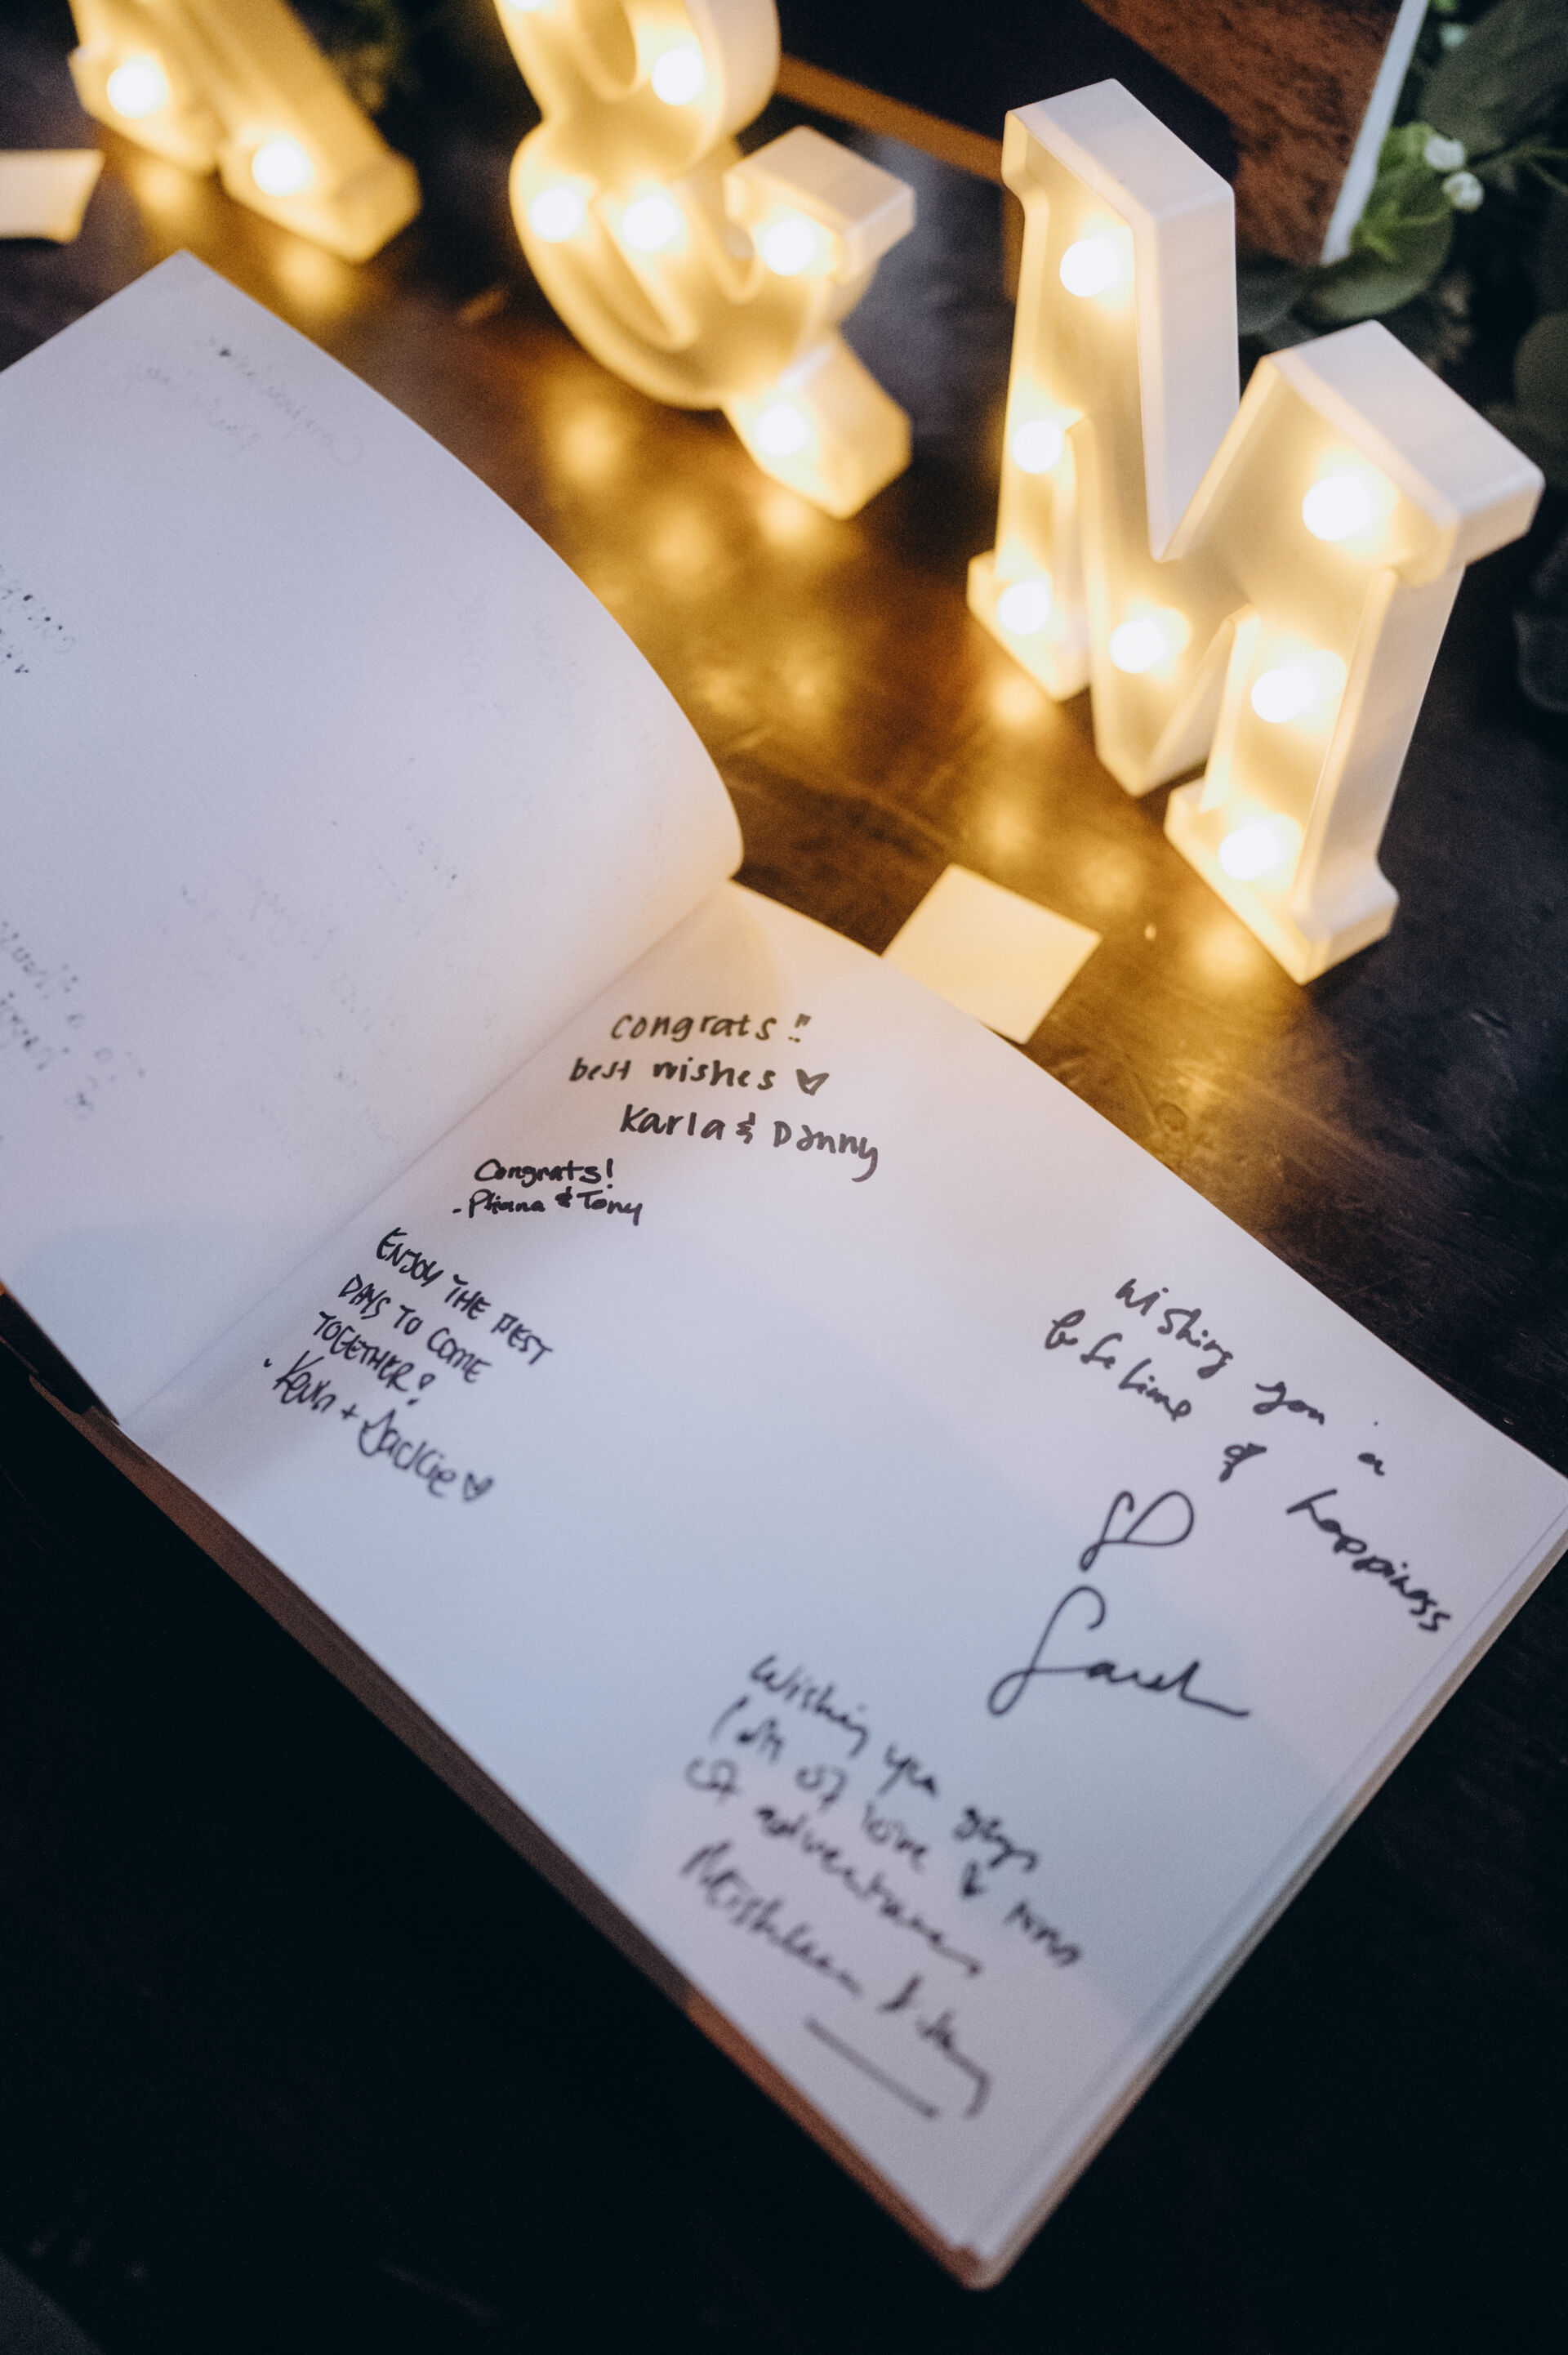 & M
Congrats!!
best wishes ♡
Karla & Danny
Congrats!
& Tony
ENJOY THE BEST
DAYS TO COME
TOGETHER!
- Kevin + Jackie ♡
Wishing you a
lifetime of happiness
♡
Sarah
Wishing you guys
lots of love &
of adventures
&